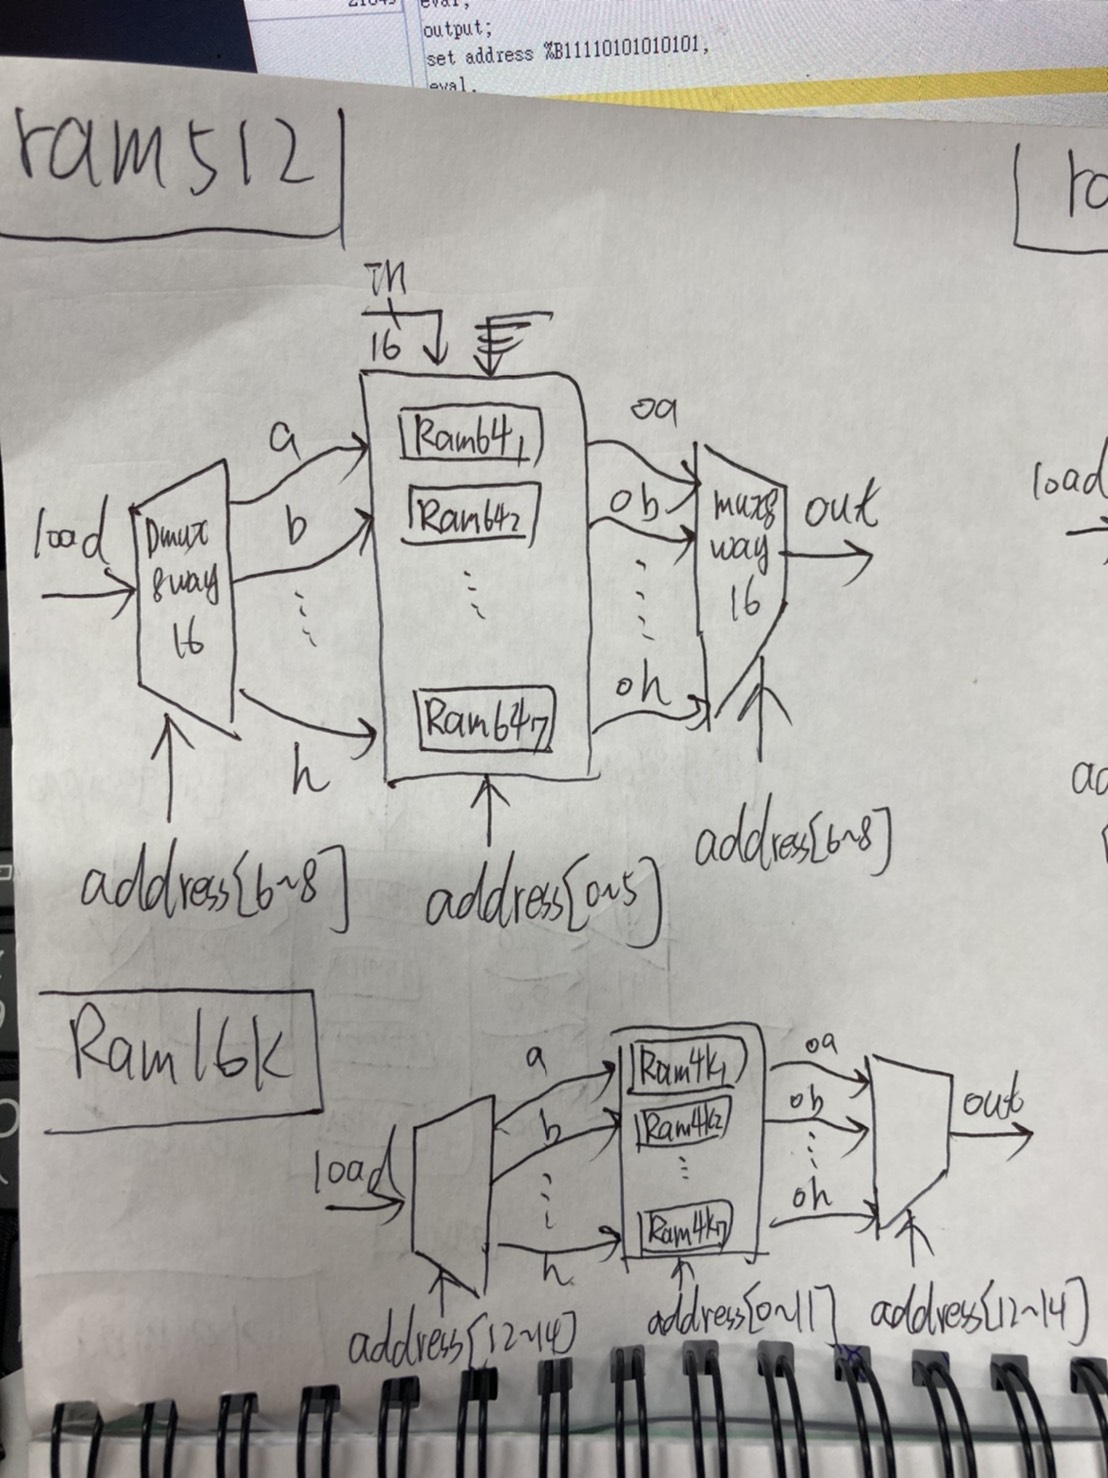 eval,
output;
set address %B11110101010101,
eval,
ram512
IN
16
a
b
h
load
Dmux
8way
16
Ram64₁
Ram64₂
Ram64₇
oa
ob
oh
mux8
way
16
out
load
address[6~8]
address[0~5]
address[6~8]
Ram16k
load
a
b
h
Ram4k₁
Ram4k₂
Ram4k₇
oa
ob
oh
out
address[12~14]
address[0~11]
address[12~14]